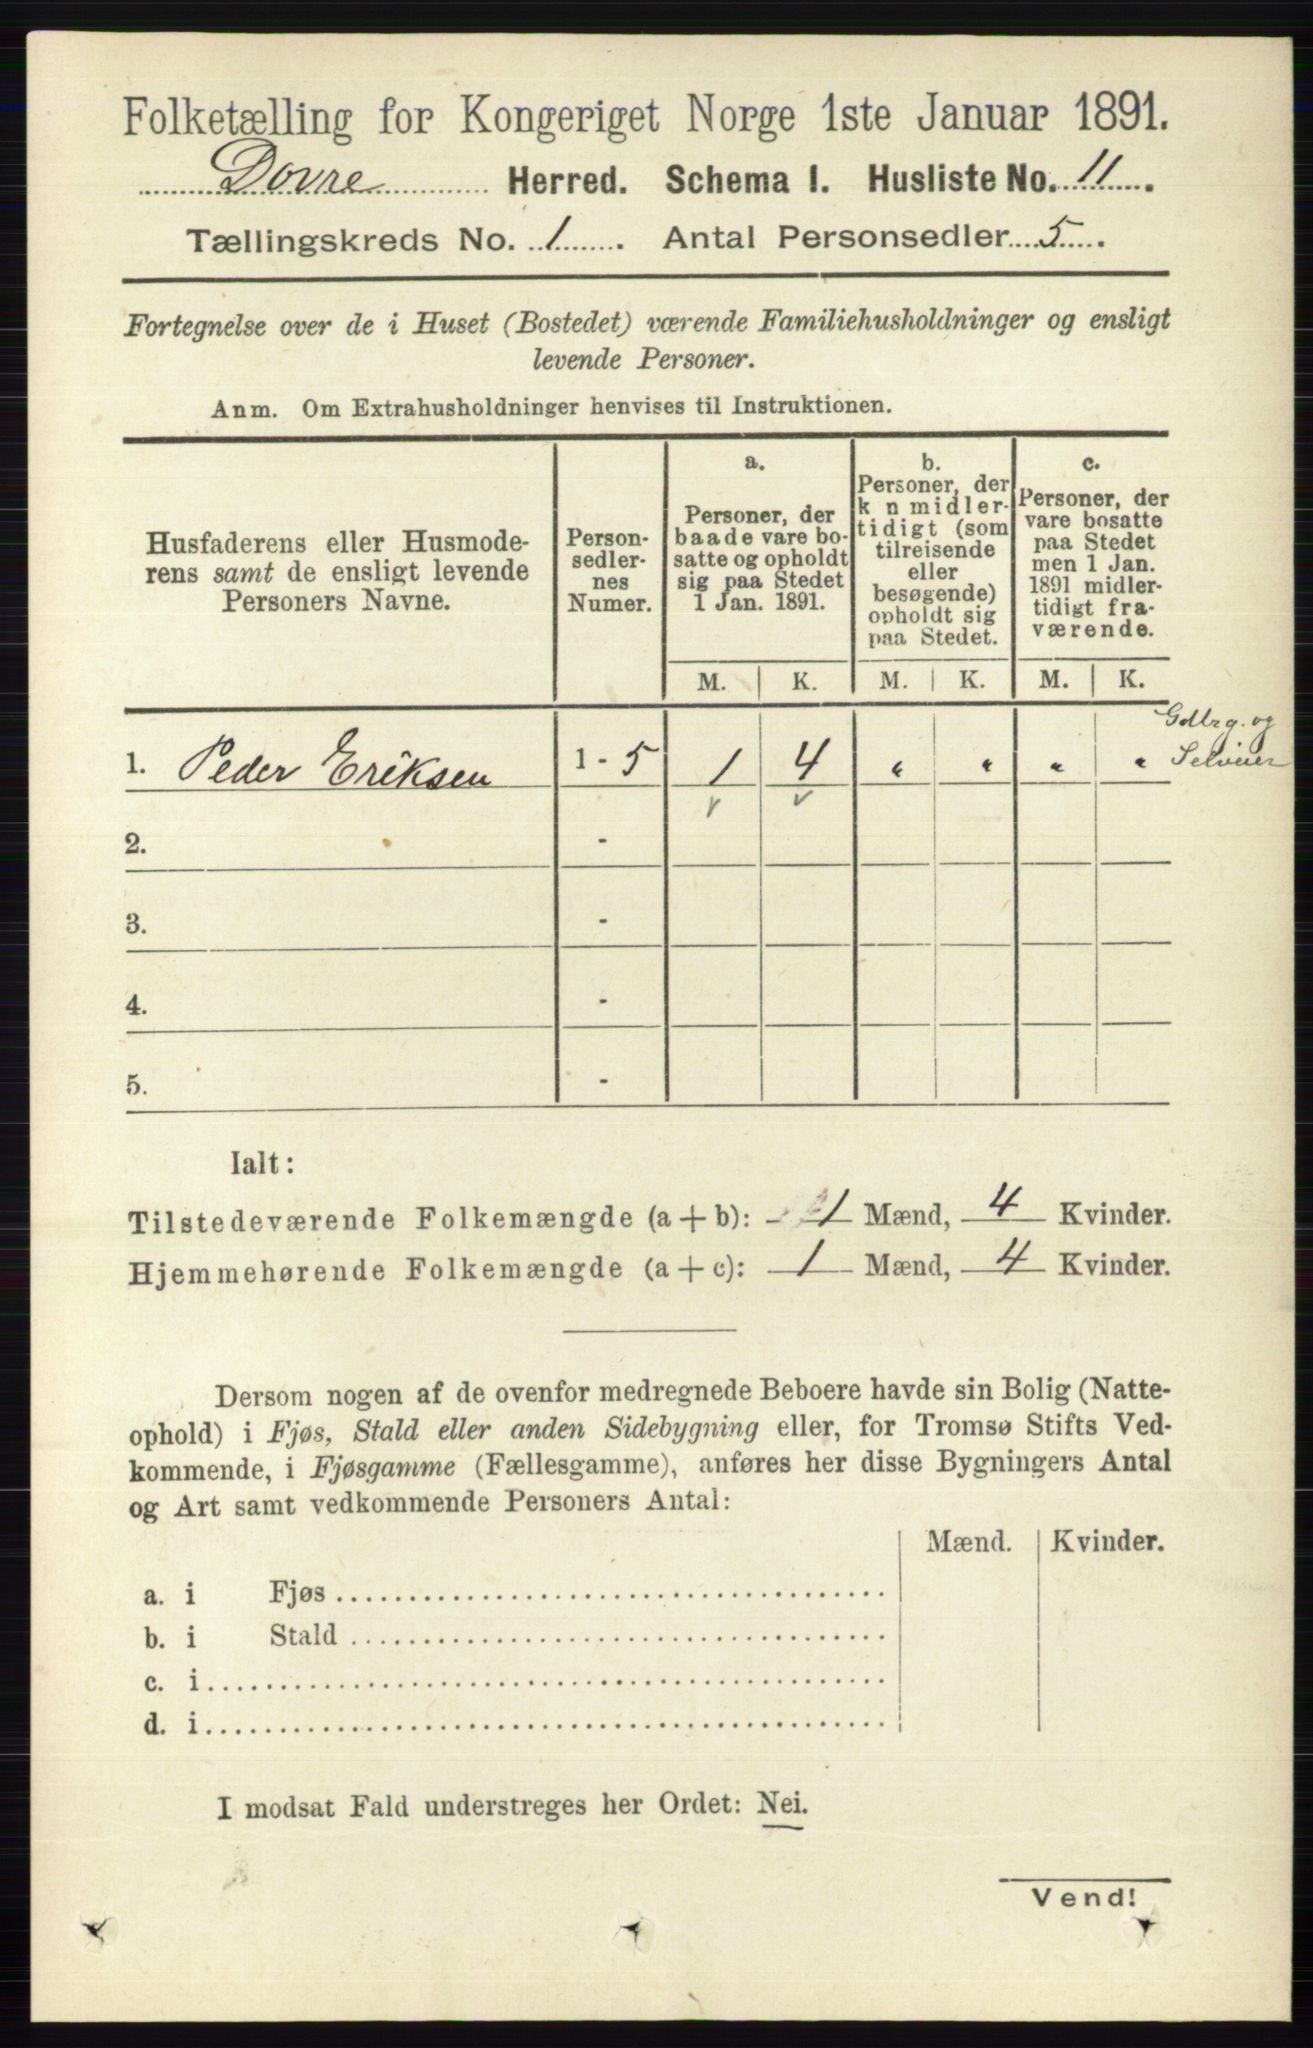 Folketælling for Kongeriget Norge 1ste Januar 1891.
Dovre Herred. Schema I. Husliste No. 11.
Tællingskreds No. 1. Antal Personsedler 5.
Fortegnelse over de i Huset (Bostedet) værende Familiehusholdninger og ensligt
levende Personer.
Anm. Om Extrahusholdninger henvises til Instruktionen.
Husfaderens eller Husmode-
rens samt de ensligt levende
Personers Navne.
Person-
sedler-
nes
Numer.
a.
Personer, der
baade vare bo-
satte og opholdt
sig paa Stedet
1 Jan. 1891.
b.
Personer, der
k n midler-
tidigt (som
tilreisende
eller
besøgende)
opholdt sig
paa Stedet.
c.
Personer, der
vare bosatte
paa Stedet
men 1 Jan.
1891 midler-
tidigt fra-
værende.
M. K. M. K. M. K.
Gdbrg. og
Selveier
1. Peder Eriksen 1 - 5 1 4 " " " "
2. -
3. -
4. -
5. -
Ialt:
Tilstedeværende Folkemængde (a + b): 1 Mænd, 4 Kvinder.
Hjemmehørende Folkemængde (a + c): 1 Mænd, 4 Kvinder.
Dersom nogen af de ovenfor medregnede Beboere havde sin Bolig (Natte-
ophold) i Fjøs, Stald eller anden Sidebygning eller, for Tromsø Stifts Ved-
kommende, i Fjøsgamme (Fællesgamme), anføres her disse Bygningers Antal
og Art samt vedkommende Personers Antal:
Mænd. Kvinder.
a. i Fjøs
b. i Stald
c. i
d. i
I modsat Fald understreges her Ordet: Nei.
Vend!